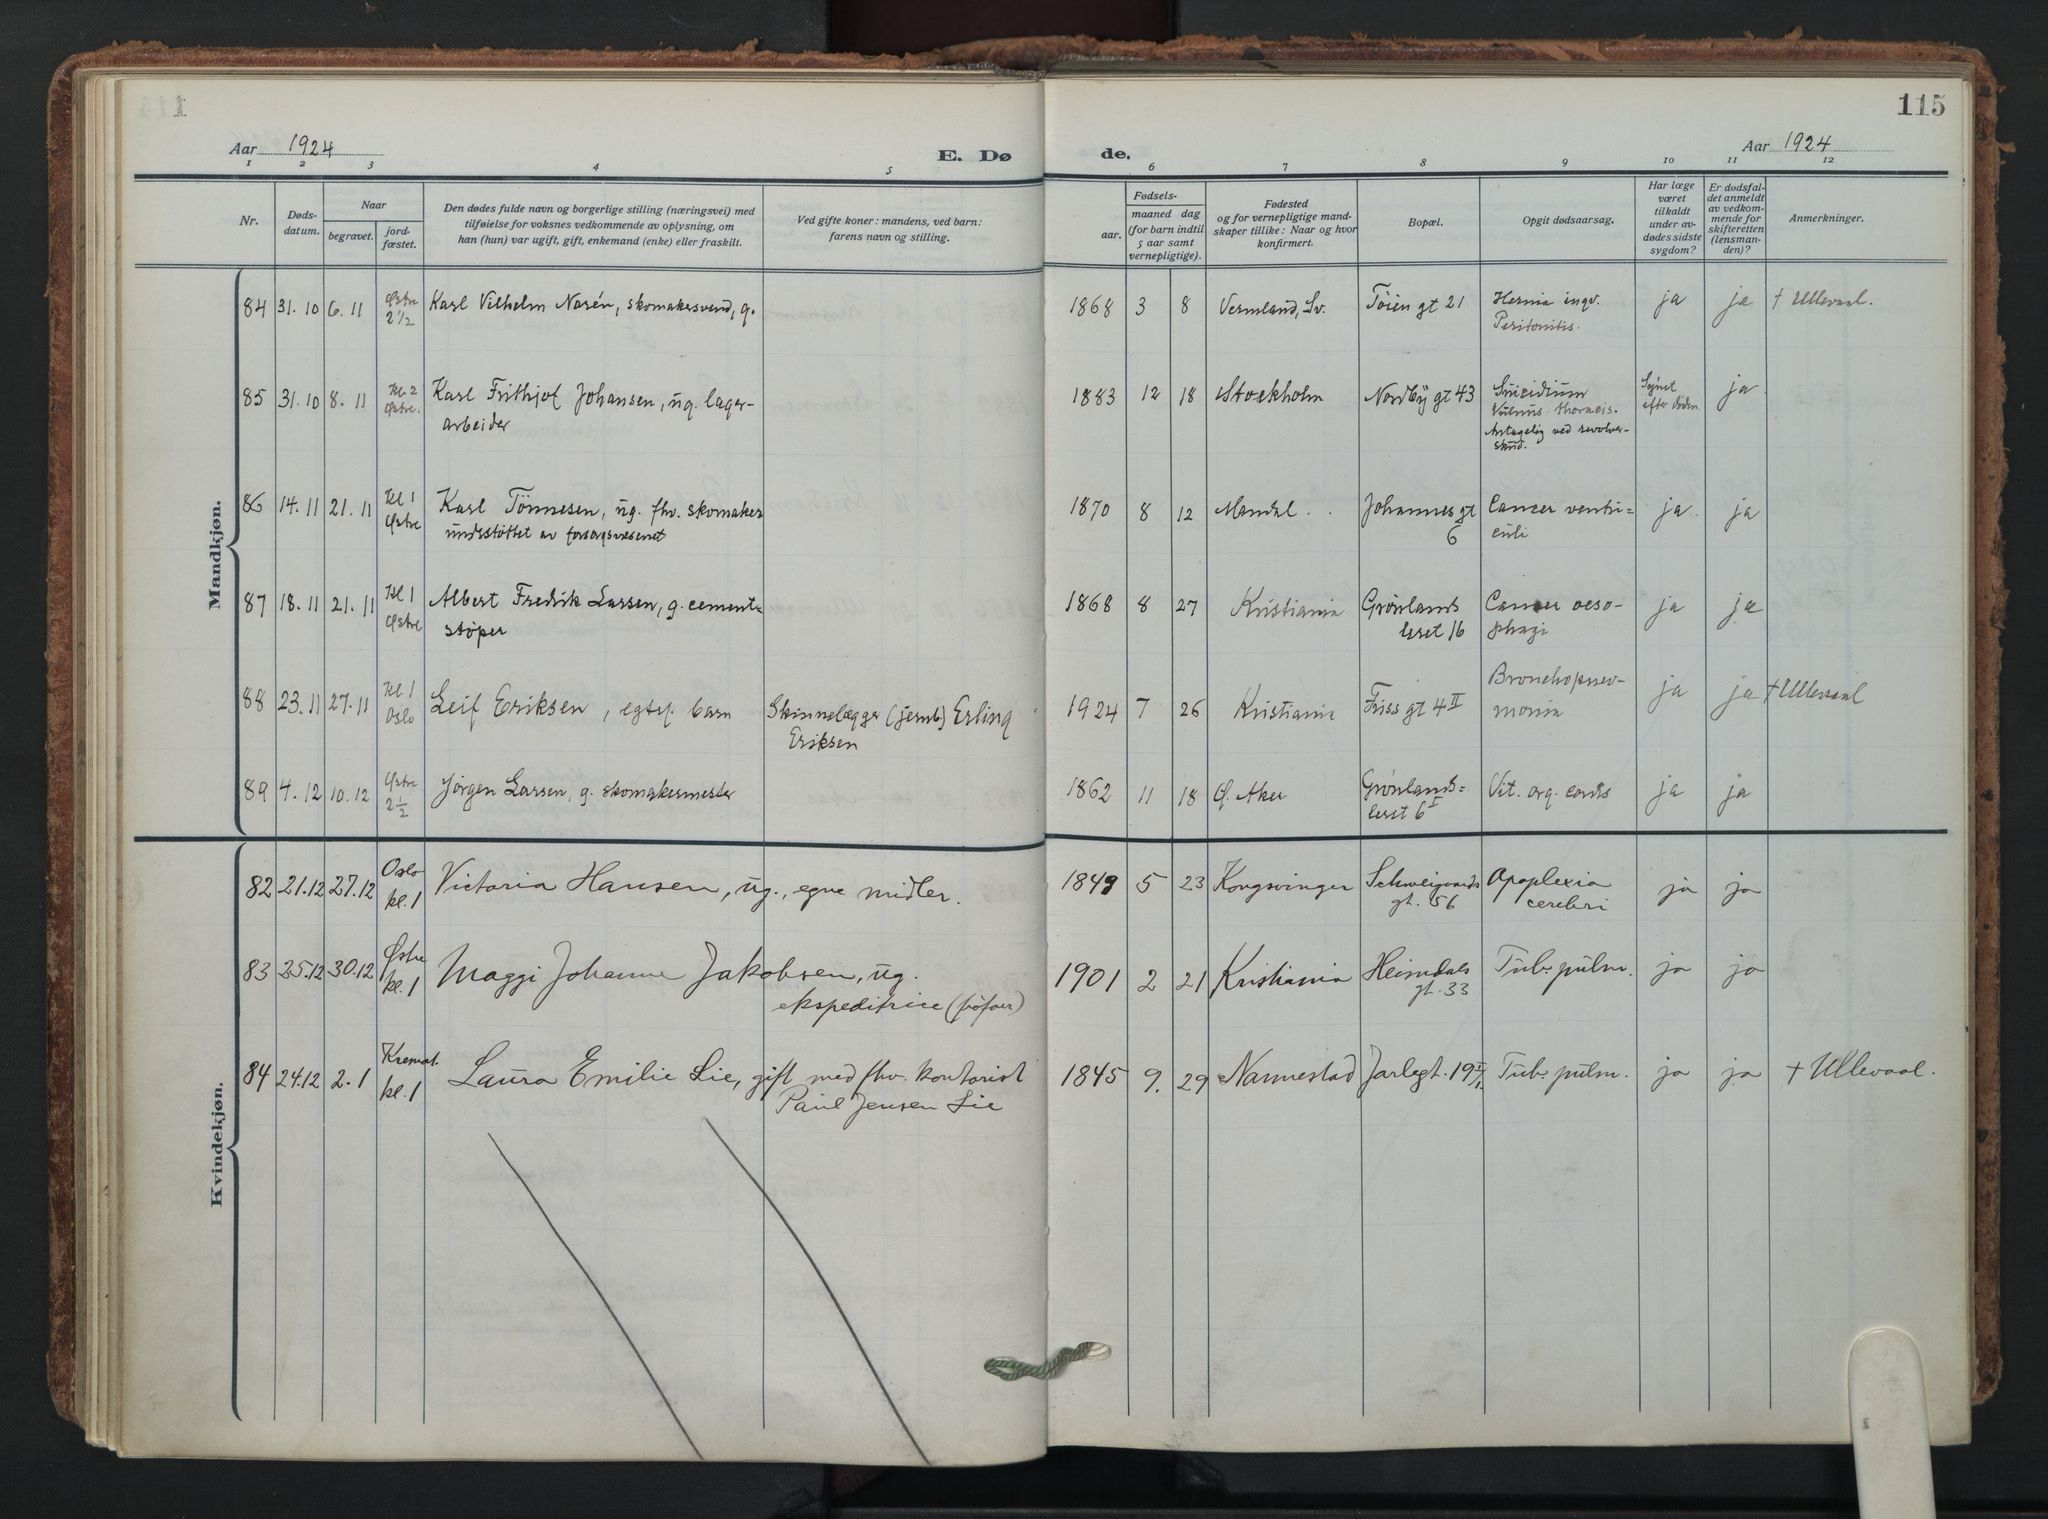 115
Aar 1924 E. Dø de. Aar 1924
1 2 3 4 5 6 7 8 9 10 11 12
Nr.
Døds-
datum.
Naar
begravet.
jord-
fæstet.
Den dødes fulde navn og borgerlige stilling (næringsvei) med
tilføielse for voksnes vedkommende av oplysning, om
han (hun) var ugift, gift, enkemand (enke) eller fraskilt.
Ved gifte koner: mandens, ved barn:
farens navn og stilling.
Fødsels-
aar.
maaned dag
(for barn indtil
5 aar samt
vernepligtige).
Fødested
og for vernepligtige mand-
skaper tillike: Naar og hvor
konfirmert.
Bopæl.
Opgit dødsaarsag.
Har læge
været
tilkaldt
under av-
dødes sidste
sygdom?
Er dødsfal-
det anmeldt
av vedkom-
mende for
skifteretten
(lensman-
den)?
Anmerkninger.
Mandkjøn.
84 31.10 6.11 Østre Karl Vilhelm Norén, skomakersvend, g. 1868 3 8 Vermland, Sv. Tøien gt 21 Hernia ingv. ja ja + Ullevaal.
2 1/2 Peritonitis.
85 31.10 8.11 Kl. 2 Karl Frithjof Johansen, ug. lager- 1883 12 18 Stockholm Nordby gt 43 Suicidium Synet ja
Østre. arbeider Vulnus thoracis. efter døden.
Antagelig ved revolver-
skud.
86 14.11 21.11 Kl 1 Karl Tönnesen, ug. fhv. skomaker 1870 8 12 Mandal Johannes gt Cancer ventri- ja ja
Østre understöttet av forsorgsvesenet 6 culi
87 18.11 21.11 Kl 1 Albert Fredrik Larsen, g. cement- 1868 8 27 Kristiania Grønlands Cancer oeso- ja ja
Østre støper leret 16 phagi
88 23.11 27.11 Kl 1 Leif Eriksen, egtef. barn Skinnelægger (jernb) Erling 1924 7 26 Kristiania Friss gt 4 II Bronchopnev- ja ja + Ullevaal
Oslo Eriksen monia
89 4.12 10.12 Østre Jørgen Larsen, g. skomakermester 1862 11 18 Ø. Aker Grønlands- Vit. org. cordis ja ja
2 1/2 leret 6 I
Kvindekjøn.
82 21.12 27.12 Oslo Victoria Hansen, ug., egne midler. 1849 5 23 Kongsvinger Schweigaards Apoplexia ja ja
kl. 1 gt. 56 cerebri
83 25.12 30.12 Østre Maggi Johanne Jakobsen, ug. 1901 2 21 Kristiania Heimdals Tub. pulm. ja ja
kl. 1 ekspeditrice gt. 33
84 24.12 2.1 Kremat. Laura Emilie Lie, gift med fhv. kontorist 1845 9. 29 Nannestad Jarlegt. 19 Tub. pulm. ja ja + Ullevaal.
kl. 1 Paul Jensen Lie